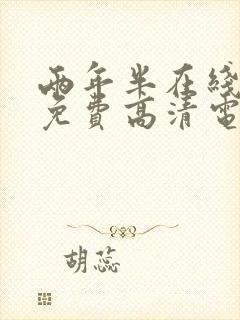 兩年半在綫
免費高清電
胡蕊